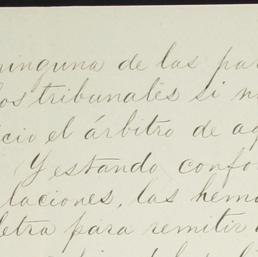 ninguna de las par
los tribunales si n
icio el árbitro de aq
Y estando confor
laciones, las hemo
letra para remitir